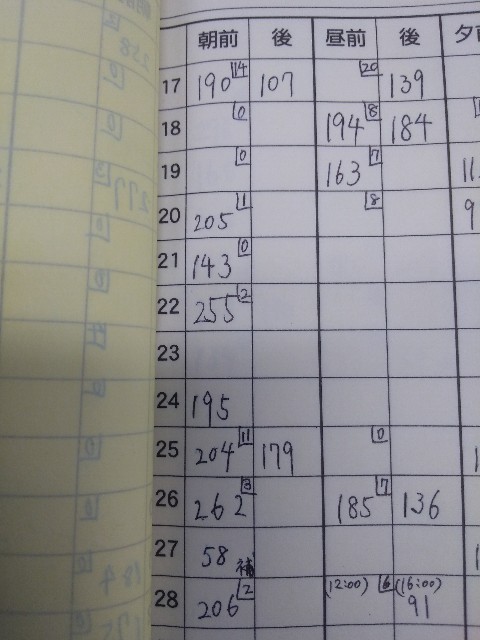 朝前 後 昼前 後 夕
17 190 14 107 20 139
18 0 194 8 184
19 0 163 7 11
20 205 1 8 9
21 143 0
22 255 2
23
24 195
25 204 11 179 0
26 262 3 185 7 136
27 58 補
28 206 2 (12:00) 6 (16:00) 91